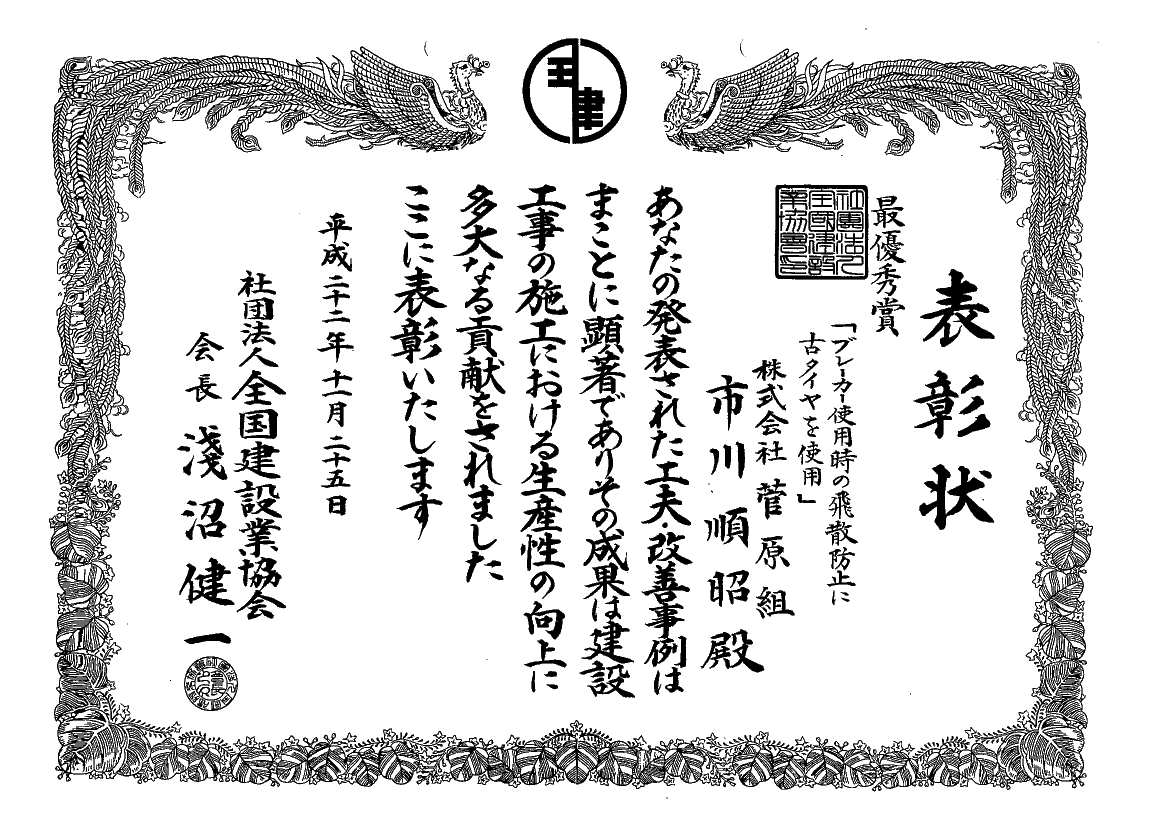 全建
表彰状
最優秀賞
社團法人全國建設業協會印
「ブレーカー使用時の飛散防止に
古タイヤを使用」
株式会社 菅原組
市川順昭殿
あなたの発表された工夫・改善事例は
まことに顕著でありその成果は建設
工事の施工における生産性の向上に
多大なる貢献をされました
ここに表彰いたします
平成二十二年十一月二十五日
社団法人全国建設業協会
会長 淺沼健一